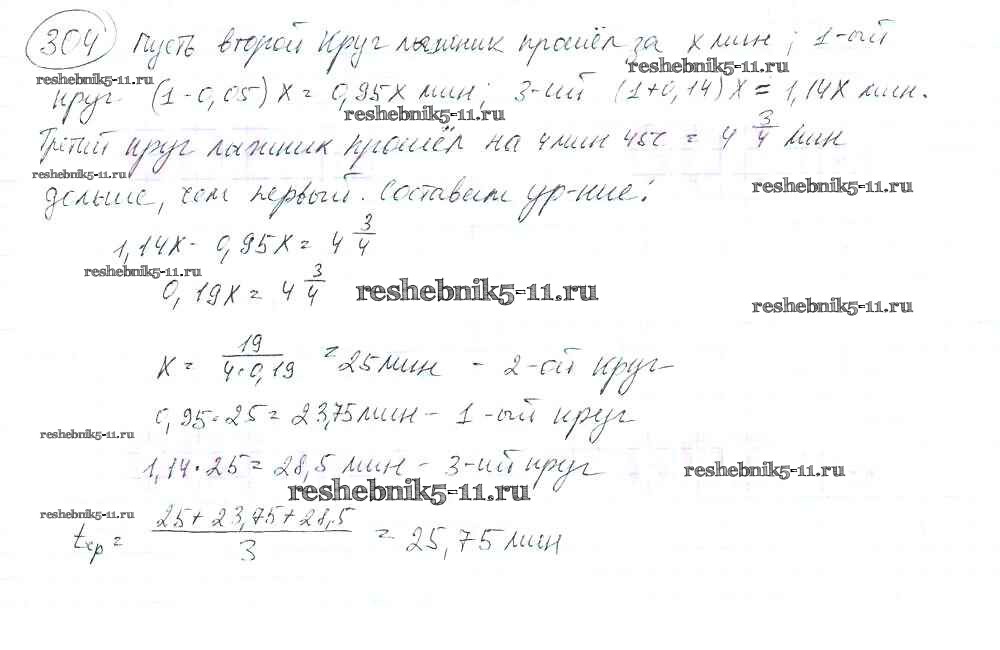 304 Пусть второй круг лыжник прошёл за x мин; 1-ый
reshebnik5-11.ru
reshebnik5-11.ru
круг (1-0,05)x = 0,95x мин; 3-ий (1+0,14)x = 1,14x мин.
reshebnik5-11.ru
Третий круг лыжник прошёл на 4 мин 45с = 4 3/4 мин
reshebnik5-11.ru
reshebnik5-11.ru
дольше, чем первый. Составим ур-ние:
1,14x - 0,95x = 4 3/4
reshebnik5-11.ru
0,19x = 4 3/4
reshebnik5-11.ru
reshebnik5-11.ru
x = 19/(4·0,19) = 25 мин - 2-ой круг
0,95·25 = 23,75 мин - 1-ый круг
reshebnik5-11.ru
1,14·25 = 28,5 мин - 3-ий круг
reshebnik5-11.ru
reshebnik5-11.ru
reshebnik5-11.ru
tср = (25+23,75+28,5)/3 = 25,75 мин